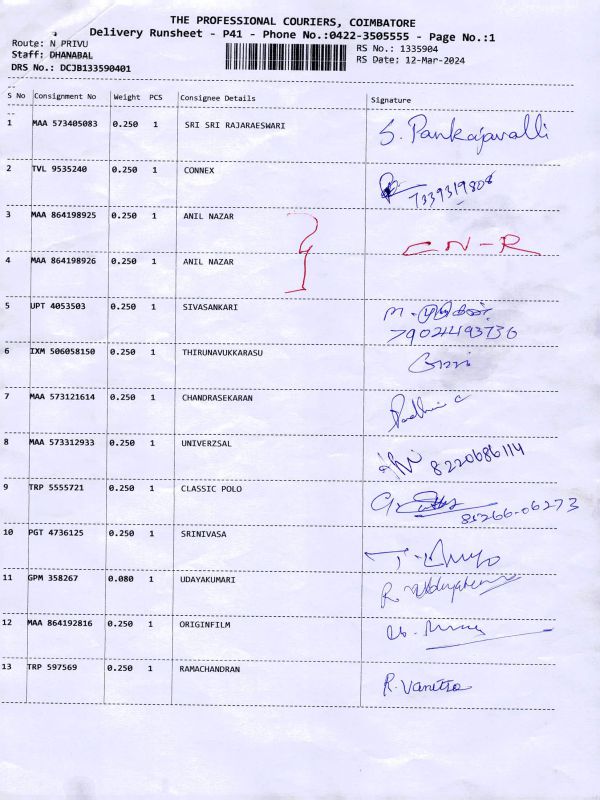 THE PROFESSIONAL COURIERS, COIMBATORE
Delivery Runsheet - P41 - Phone No.:0422-3505555 - Page No.:1
Route: N PRIVU RS No.: 1335904
Staff: DHANABAL RS Date: 12-Mar-2024
DRS No.: DCJB133590401
S No Consignment No Weight PCS Consignee Details Signature
1 MAA 573405083 0.250 1 SRI SRI RAJARAESWARI S. Pankajavalli
2 TVL 9535240 0.250 1 CONNEX 7339319808
3 MAA 864198925 0.250 1 ANIL NAZAR CN-R
4 MAA 864198926 0.250 1 ANIL NAZAR
5 UPT 4053503 0.250 1 SIVASANKARI
6 IXM 506058150 0.250 1 THIRUNAVUKKARASU
7 MAA 573121614 0.250 1 CHANDRASEKARAN
8 MAA 573312933 0.250 1 UNIVERZSAL 8220686114
9 TRP 5555721 0.250 1 CLASSIC POLO 85266-06273
10 PGT 4736125 0.250 1 SRINIVASA
11 GPM 358267 0.080 1 UDAYAKUMARI
12 MAA 864192816 0.250 1 ORIGINFILM
13 TRP 597569 0.250 1 RAMACHANDRAN R. Vanetha